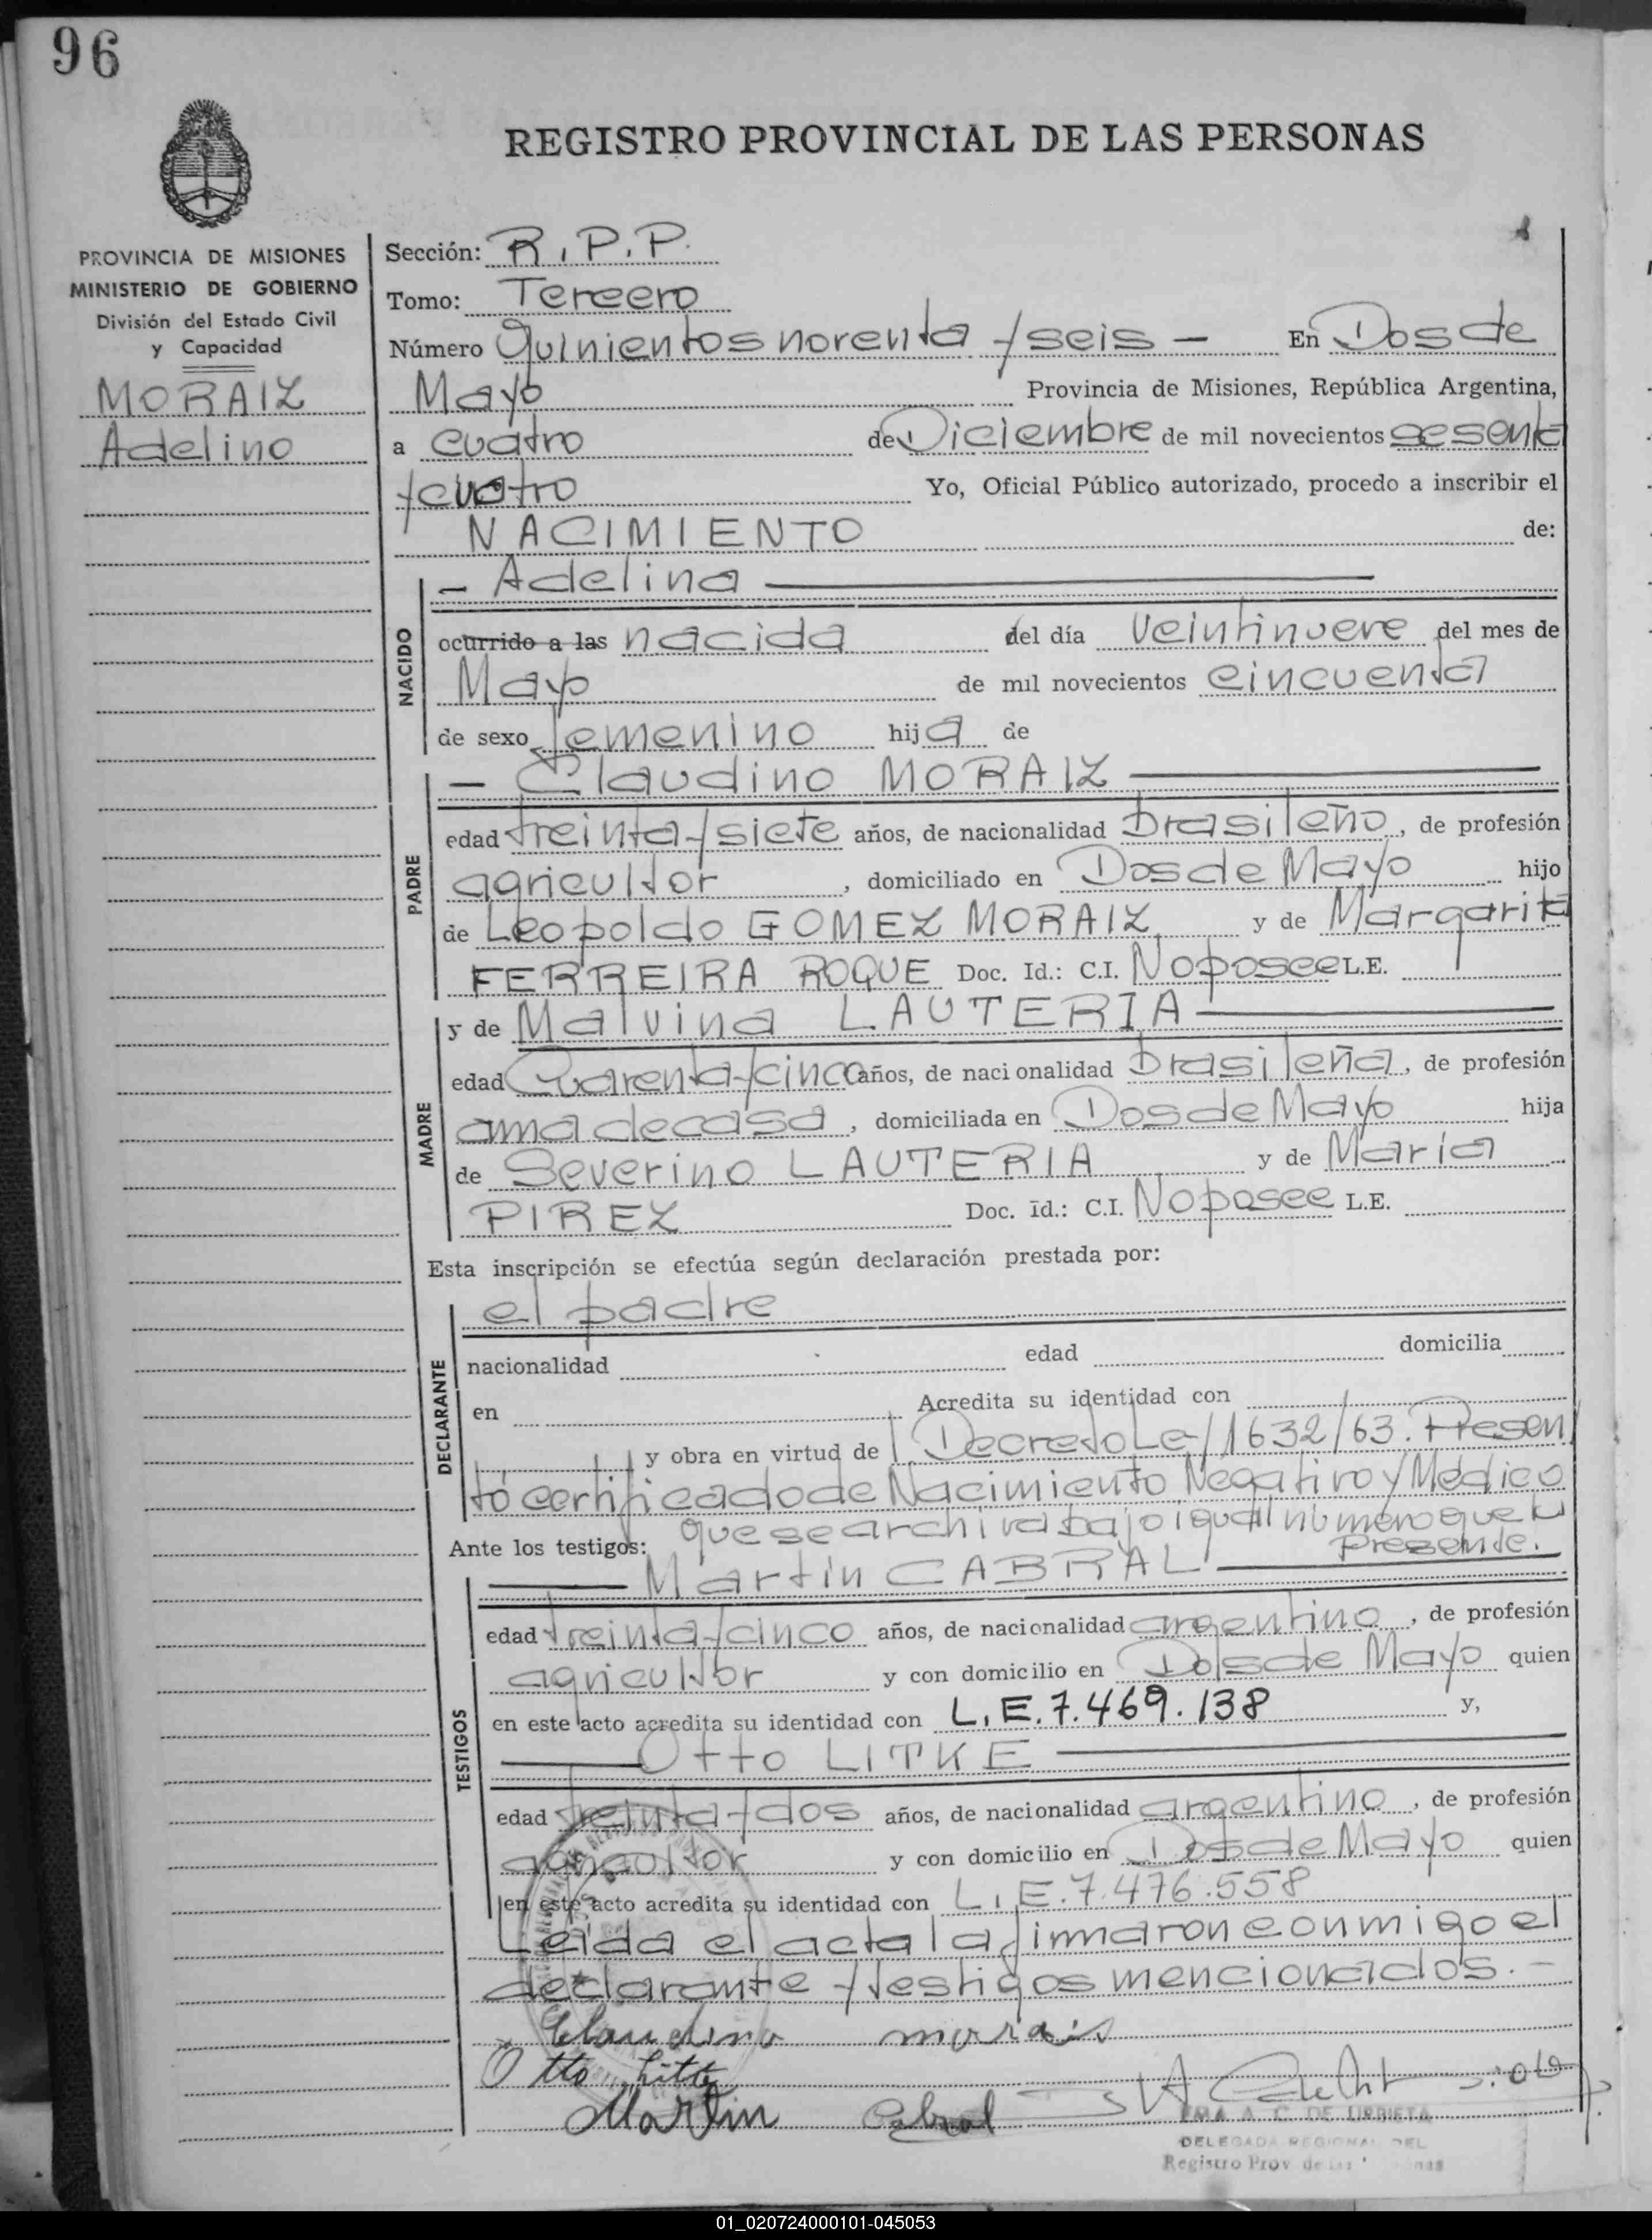 96
REGISTRO PROVINCIAL DE LAS PERSONAS
PROVINCIA DE MISIONES
MINISTERIO DE GOBIERNO
División del Estado Civil
y Capacidad
MORAIZ
Adelino
Sección: R.P.P.
Tomo: Tercero
Número Quinientos noventa y seis - En Dos de
Mayo Provincia de Misiones, República Argentina,
a cuatro de Diciembre de mil novecientos sesenta
y cuatro Yo, Oficial Público autorizado, procedo a inscribir el
NACIMIENTO de:
- Adelina
NACIDO
ocurrido a las nacida del día veintinueve del mes de
Mayo de mil novecientos cincuenta
de sexo femenino hija de
- Claudino MORAIZ
PADRE
edad treinta y siete años, de nacionalidad brasileño, de profesión
agricultor, domiciliado en Dos de Mayo hijo
de Leopoldo GOMEZ MORAIZ y de Margarita
FERREIRA ROQUE Doc. Id.: C.I. No posee L.E.
y de Malvina LAUTERIA
MADRE
edad Cuarenta y cinco años, de nacionalidad brasileña, de profesión
ama de casa, domiciliada en Dos de Mayo hija
de Severino LAUTERIA y de Maria
PIREZ Doc. Id.: C.I. No posee L.E.
Esta inscripción se efectúa según declaración prestada por:
el padre
DECLARANTE
nacionalidad edad domicilia
en Acredita su identidad con
y obra en virtud de Decreto Le/1632/63. Presen
tó certificado de Nacimiento Negativo y Médico
que se archiva bajo igual número que la
presente.
Ante los testigos:
Martín CABRAL
TESTIGOS
edad treinta y cinco años, de nacionalidad argentino, de profesión
agricultor y con domicilio en Dos de Mayo quien
en este acto acredita su identidad con L.E. 7.469.138 y,
Otto LITKE
edad treinta y dos años, de nacionalidad argentino, de profesión
agricultor y con domicilio en Dos de Mayo quien
en este acto acredita su identidad con L.E. 7.476.558
Leida el acta la firmaron conmigo el
declarante y testigos mencionados. -
Claudino morais
Otto Litke
Martin Cabral
EMA A. C. DE URBIETA
DELEGADA REGIONAL DEL
Registro Prov de las
01_020724000101-045053